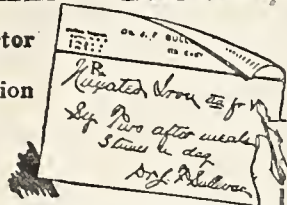 tor
ion
Rx
Nuxated Iron
Sig Two after meals
3 times a day
Dr J. F Sullivan